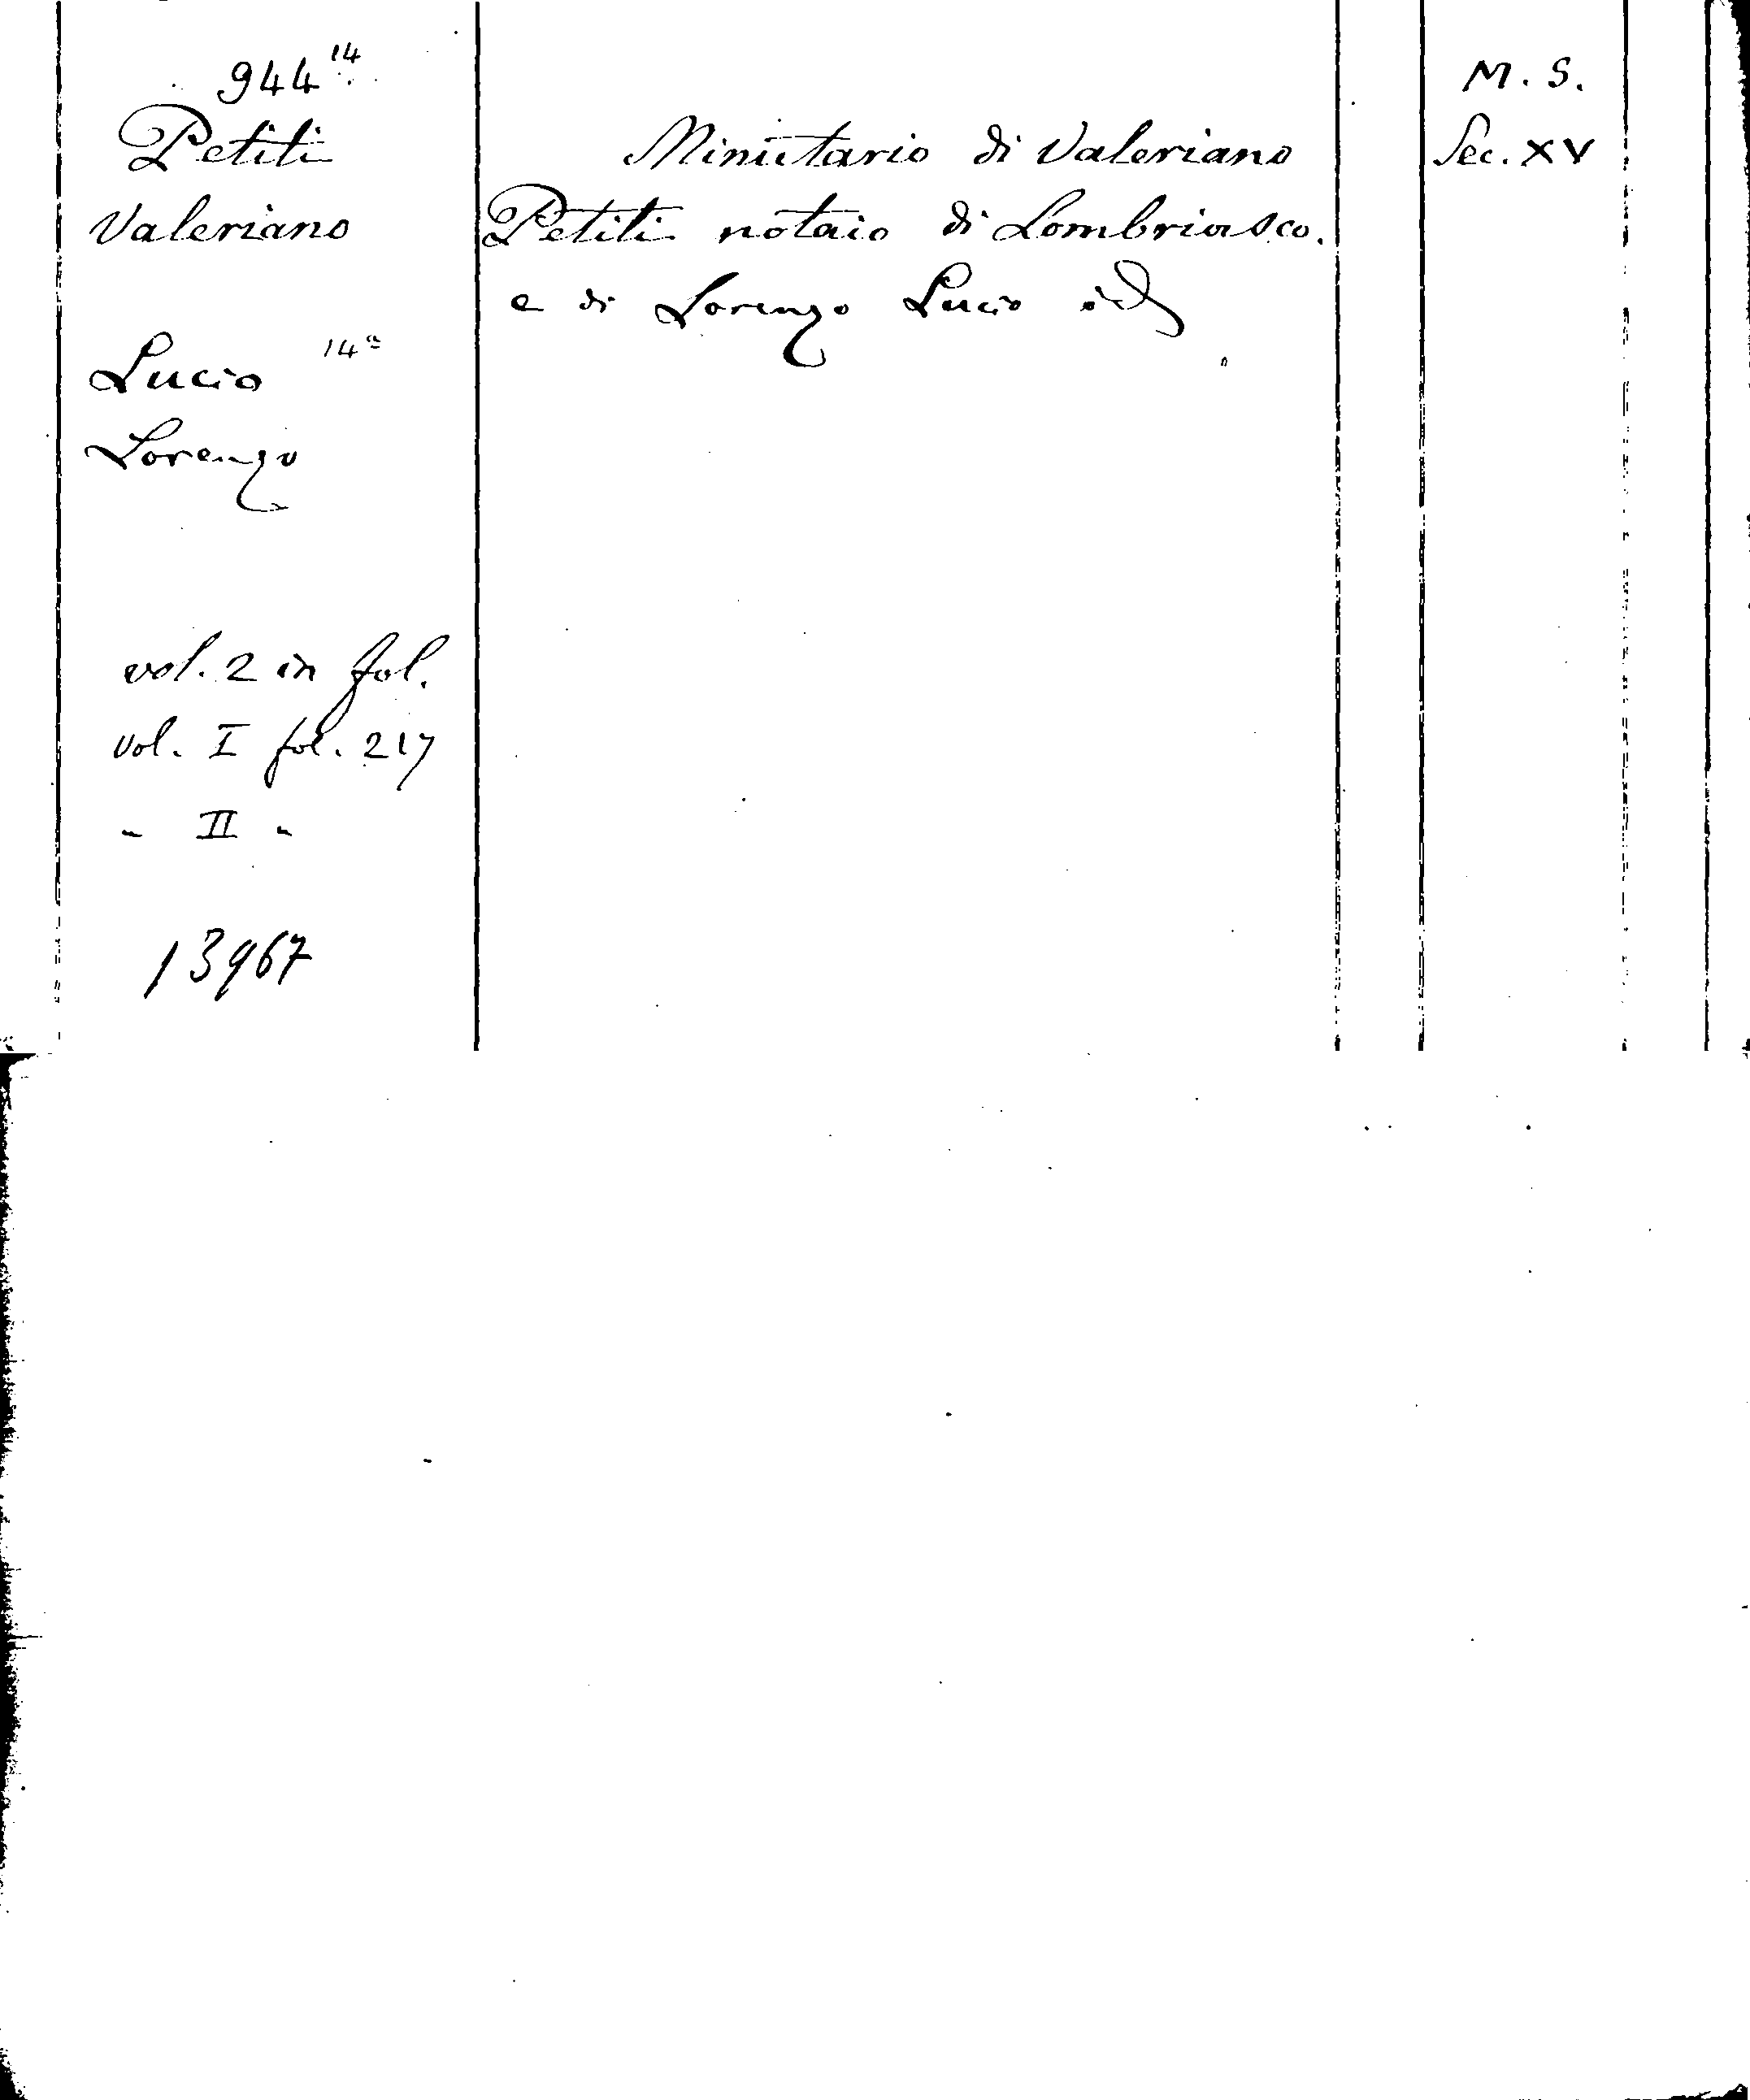 944 14
Petiti
Valeriano
Lucio 14a
Lorenzo
vol. 2 in fol.
vol. I fol. 217
" II "
13967
Minutario di Valeriano
Petiti notaio di Lombriasco.
e di Lorenzo Lucio id
M. S.
Sec. XV